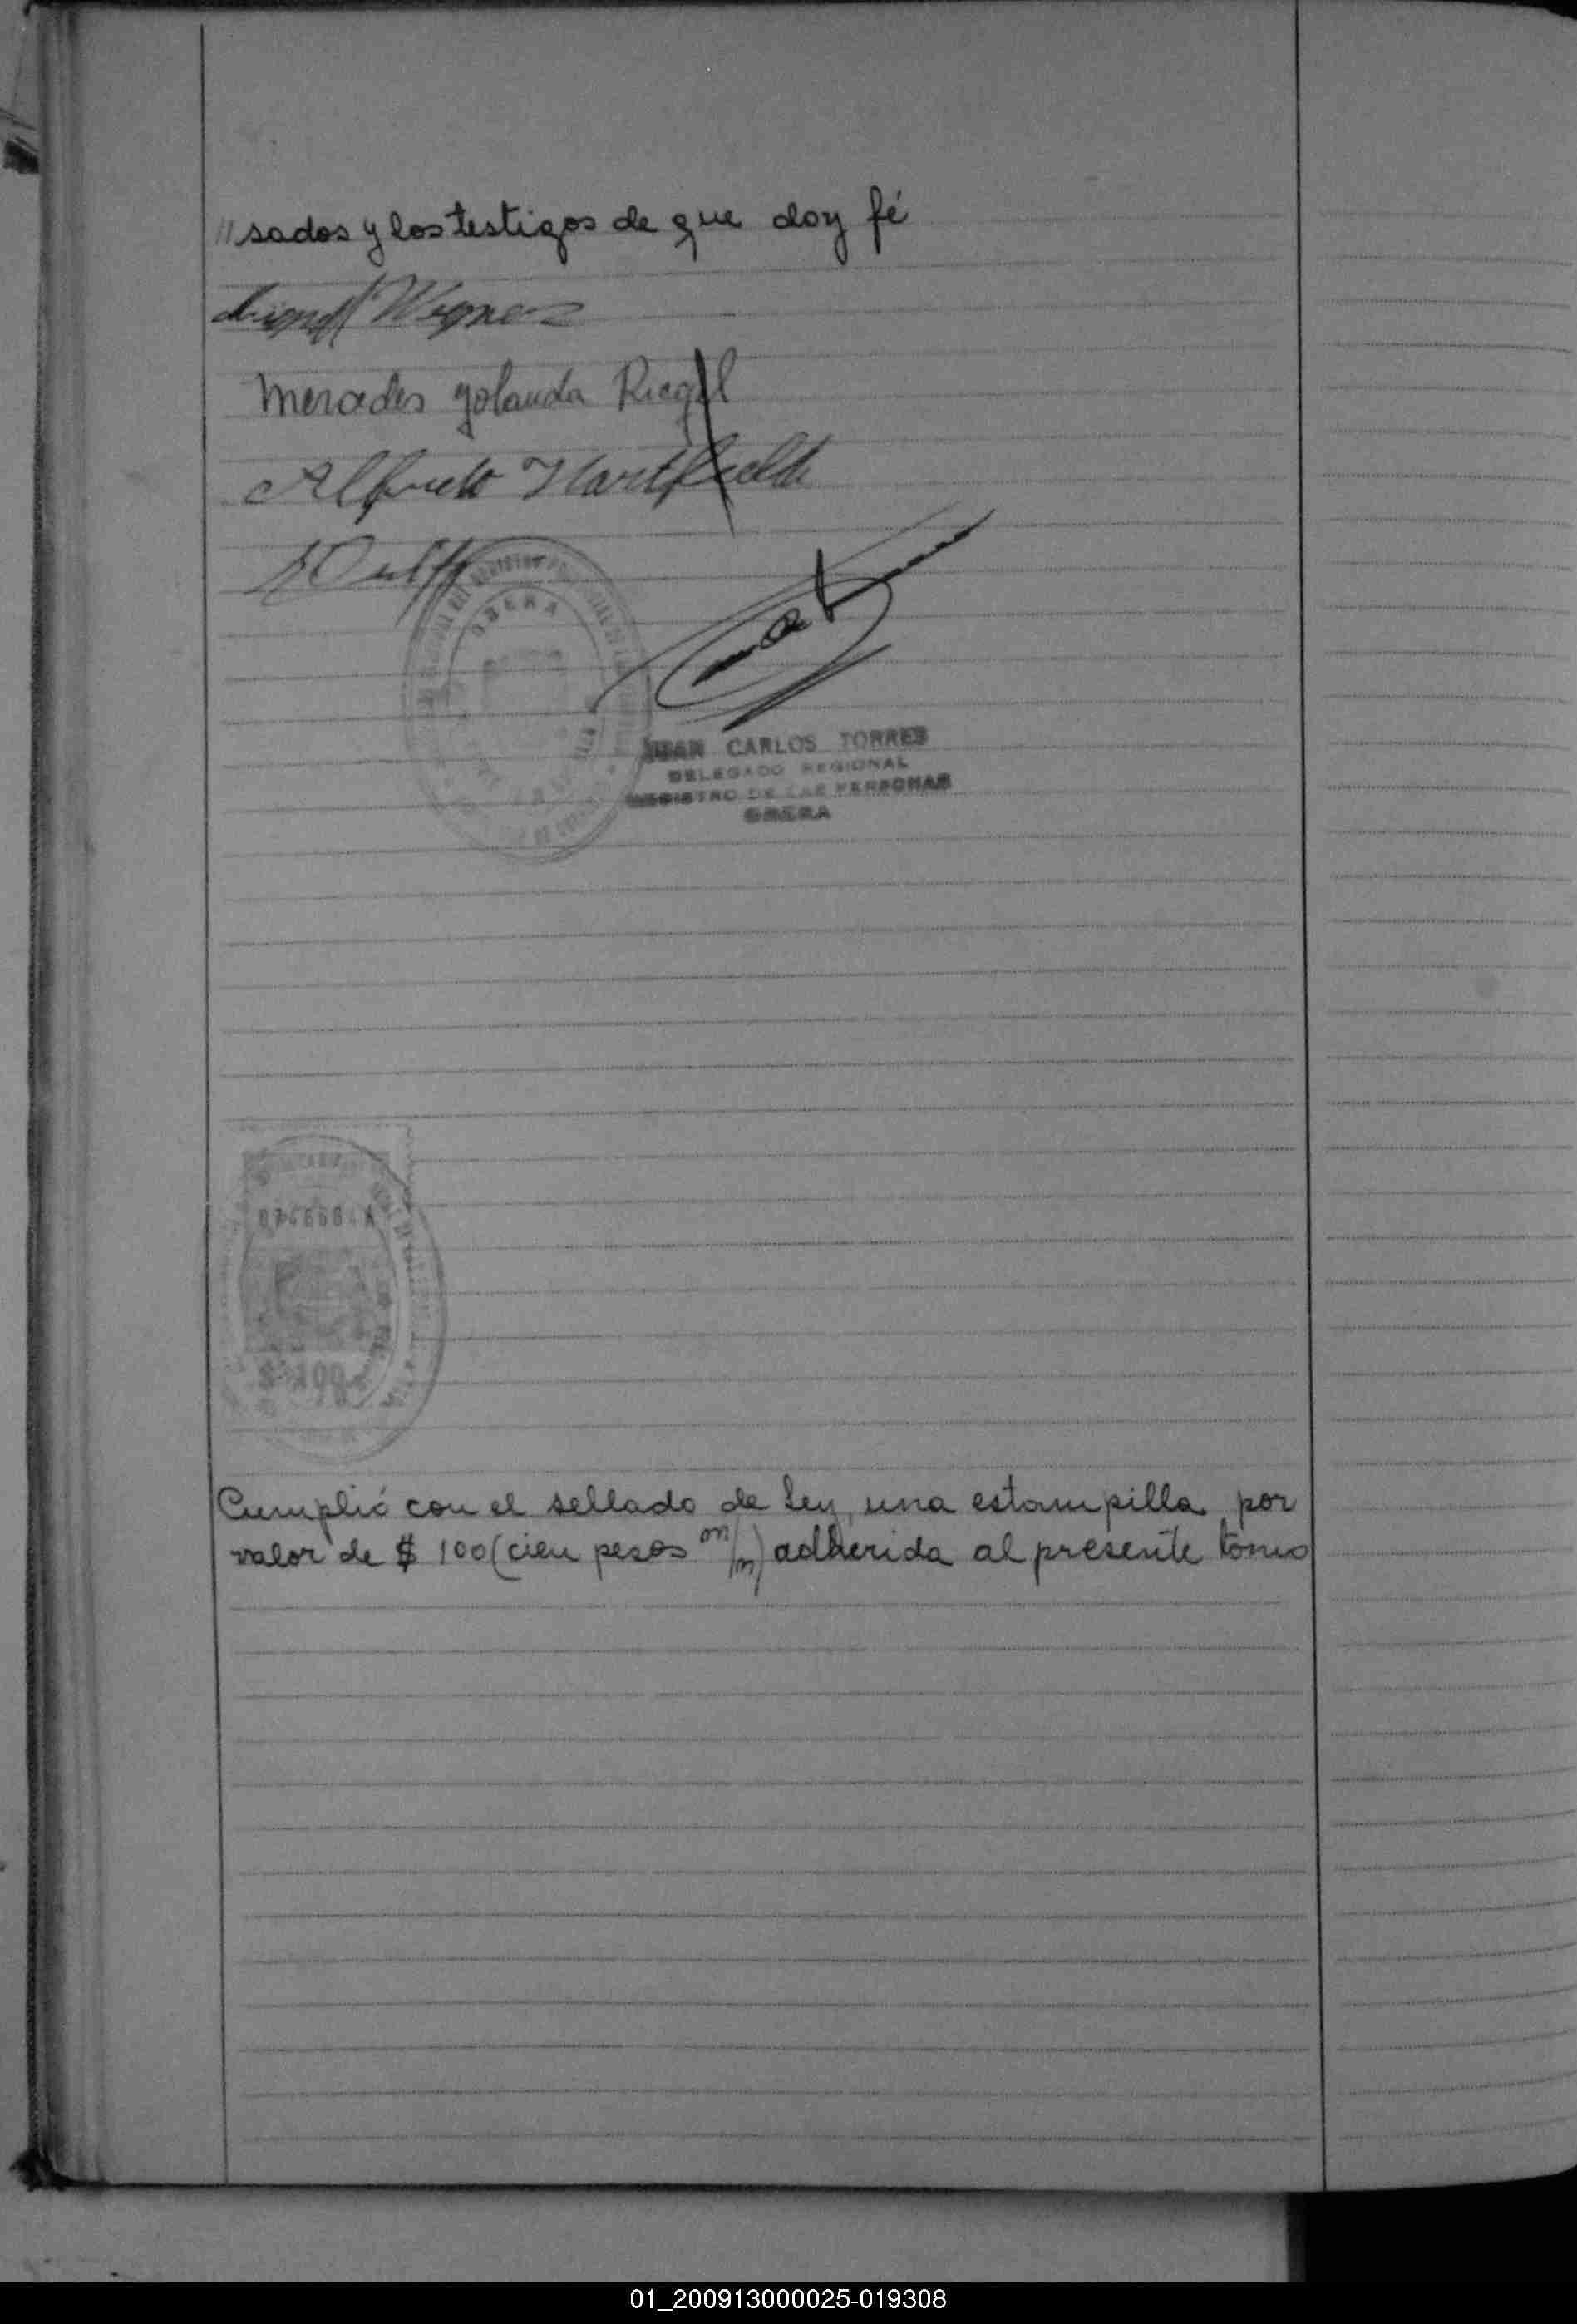 "sados y los testigos de que doy fé
Wegner
Mercedes Yolanda Riegel
Alfredo Hartfield
OBERA
JUAN CARLOS TORRES
DELEGADO REGIONAL
REGISTRO DE LAS PERSONAS
OBERA
$ 100
Cumplió con el sellado de Ley, una estampilla por
valor de $ 100 (cien pesos m/n) adherida al presente tomo
01_200913000025-019308